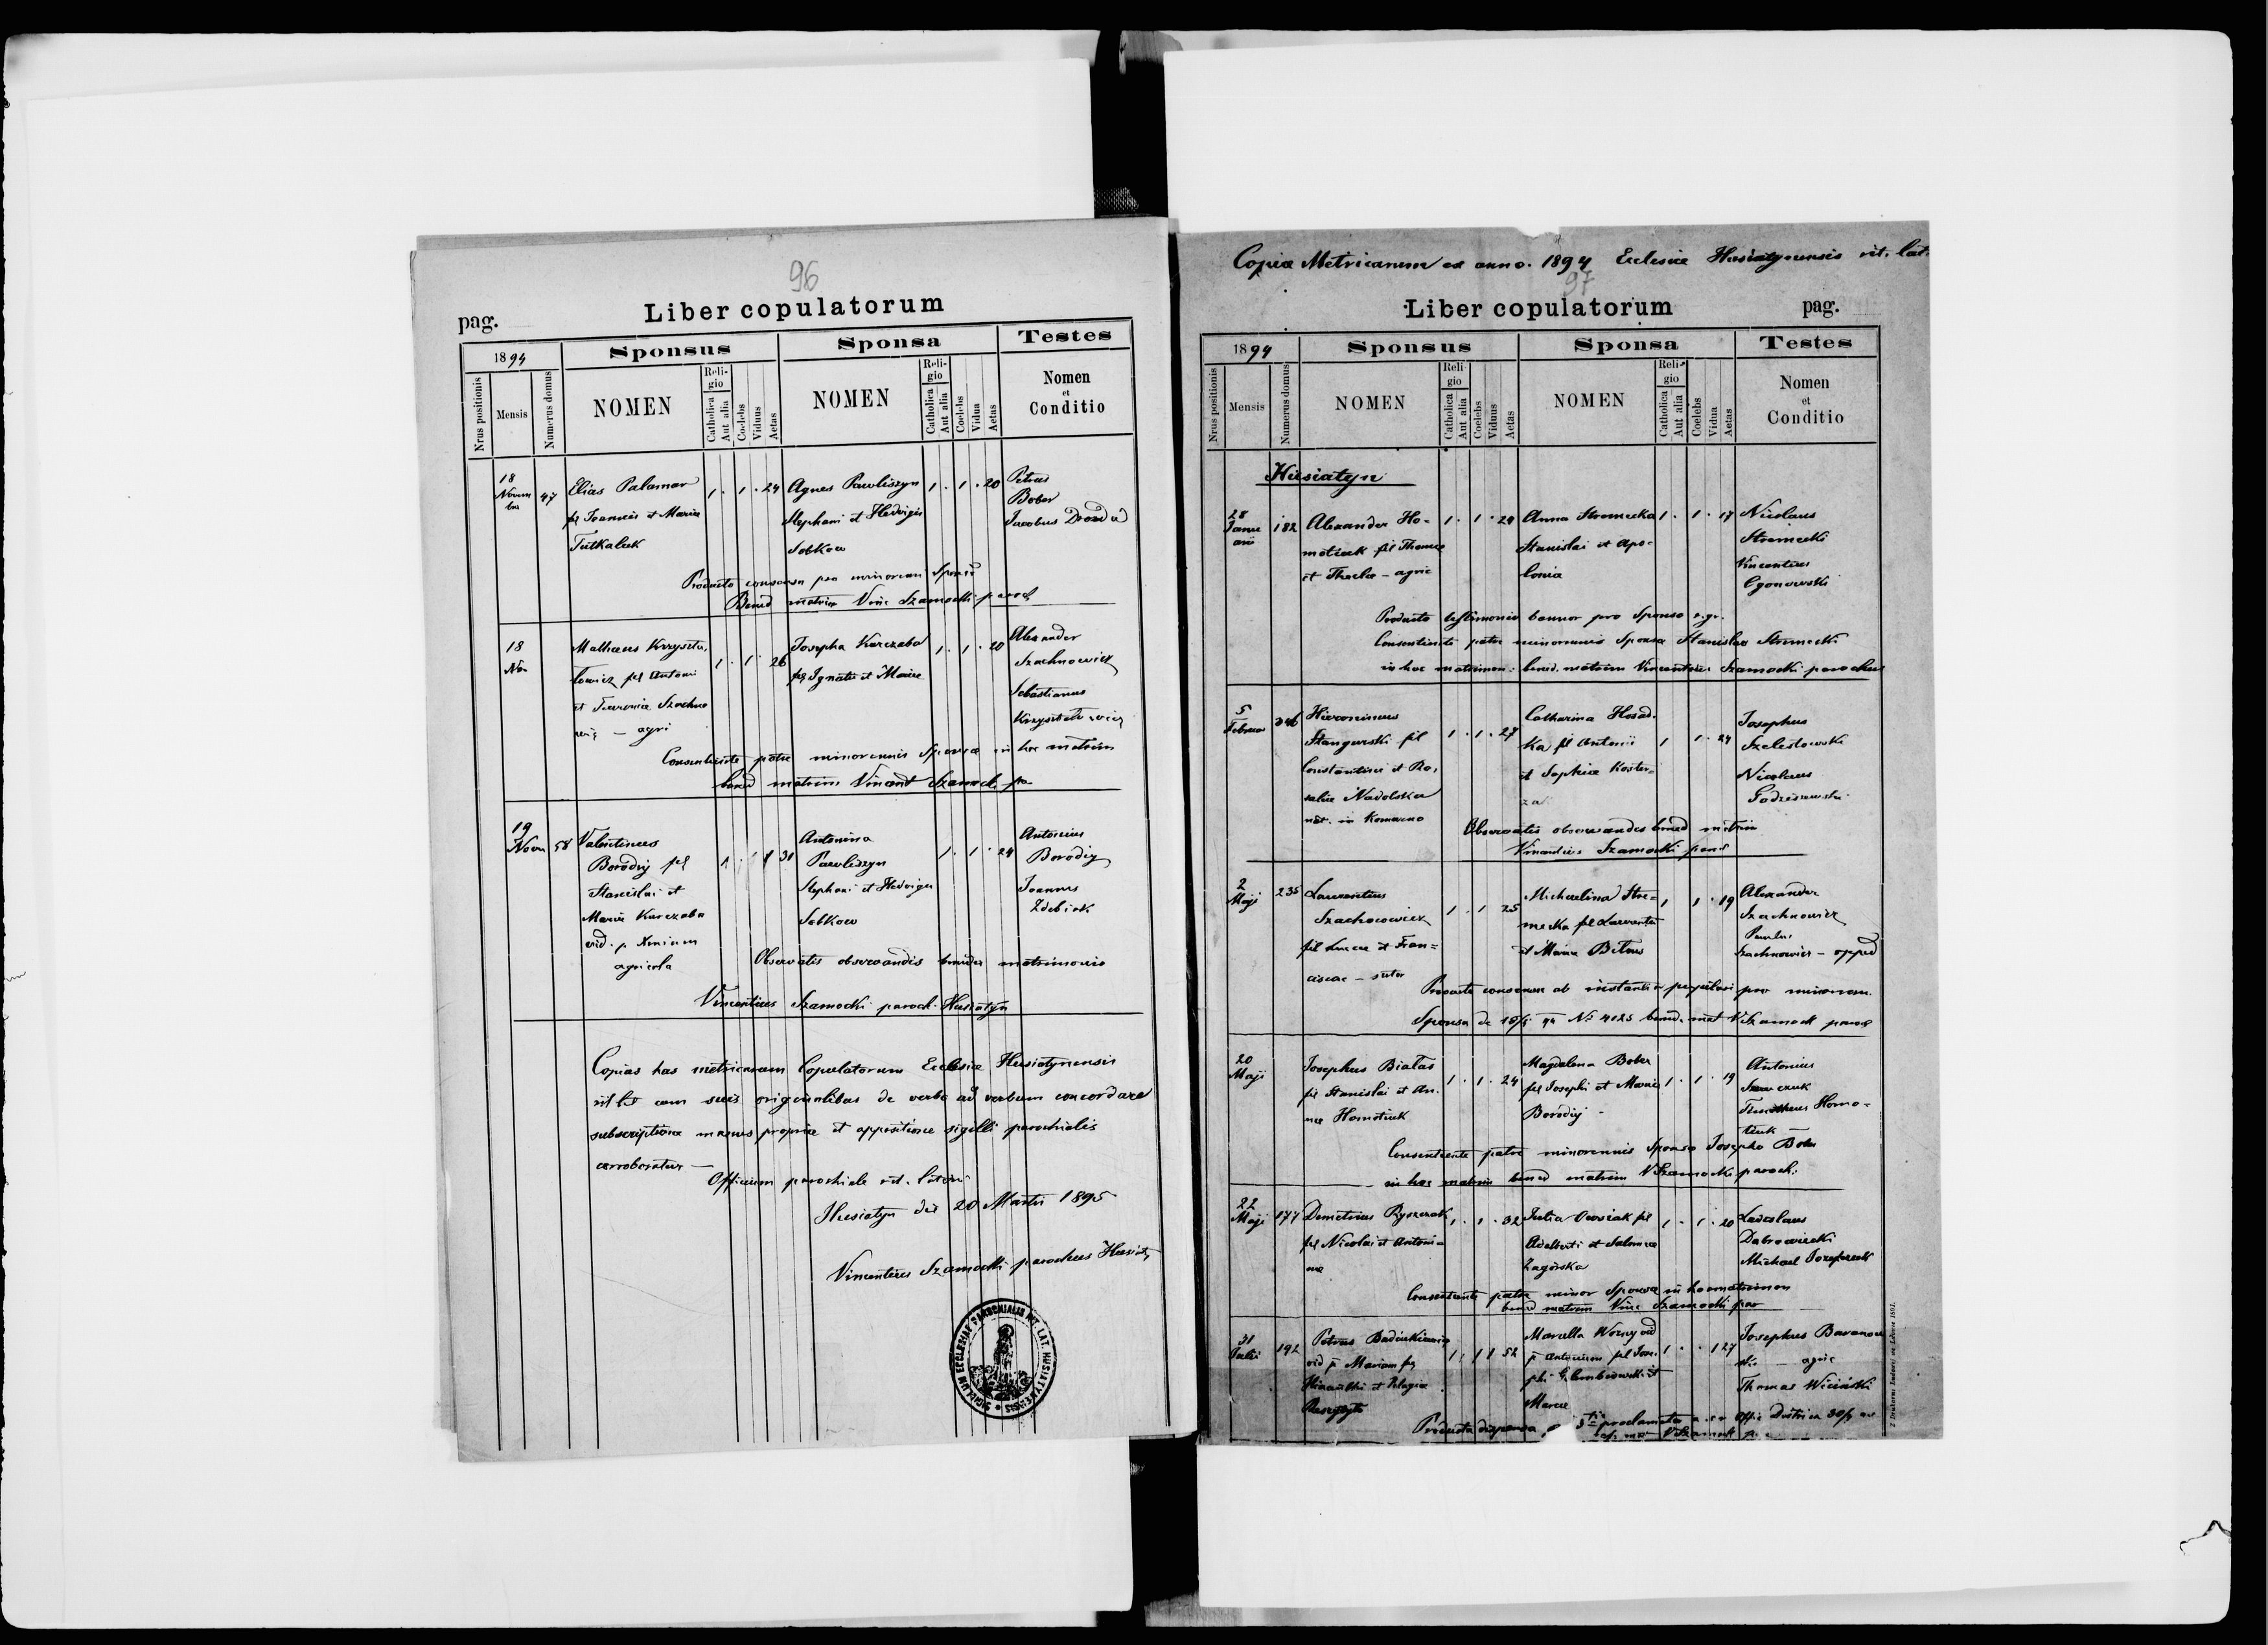 96
pag.
Liber copulatorum
1894
Sponsus
Sponsa
Testes
Nrus positionis
Mensis
Numerus domus
NOMEN
Religio
Catholica
Aut alia
Coelebs
Viduus
Aetas
NOMEN
Religio
Catholica
Aut alia
Coelebs
Vidua
Aetas
Nomen
et
Conditio
18 Novem bris 47 Elias Palamar 1 . 1 . 24 Agnes Pawliszyn 1 . 1 . 20 Petrus
fil Joannis et Mariae Stephani et Hedvigis Bober
Tutkaluk Sobkow Jacobus Drozd
Producto consensu pro minorenni Sponsa
Bened matrim Vinc Szamocki paroch
18 Nov Mathaeus Krzyszta- 1 . 1 . 26 Josepha Karczaba 1 . 1 . 20 Alexander
lowicz fil Antoni fil Ignatii et Mariae Szachnowicz
et Szachno Sebastianus
wicz — agri Krzysztalowicz
Consentiente patre minorennis Sponsae in hoc matrim
bened matrim Vincent Szamocki pa
19 Novem 58 Valentinus 1 . 1 31 Antonina 1 . 1 . 24 Antonius
Borodij fil Pawliszyn Borodij
Stanislai et Stephani et Hedvigis Joannes
Mariae Karczaba Sobkow Zdebiak
vid. p.
agricola
Observatis observandis matrimonio
Vincentius Szamocki paroch. Husiatyn
Copias has metricarum Copulatorum Ecclesiae Husiatynensis
rit lat cum suis originalibus de verbo ad verbum concordare
subscriptione manus propriae et appositione sigilli parochialis
corroboratur —
Officium parochiale rit. latini
Husiatyn die 20 Martii 1895
Vincentius Szamocki parochus Husiatyn
SIGILLUM ECCLESIAE PAROCHIALIS RIT. LAT. HUSIATYNENSIS
Copia Metricarum ex anno. 1894 Eclesiae Husiatynensis rit. lat.
97
Liber copulatorum
pag.
1894
Sponsus
Sponsa
Testes
Nrus positionis
Mensis
Numerus domus
NOMEN
Religio
Catholica
Aut alia
Coelebs
Viduus
Aetas
NOMEN
Religio
Catholica
Aut alia
Coelebs
Vidua
Aetas
Nomen
et
Conditio
Husiatyn
28 Janu arii 182 Alexander Ho- 1 . 1 . 24 Anna Stromecka 1 . 1 . 17 Nicolaus
motiuk fil Thomae Stanislai et Apo- Stromecki
et Theclae — agric lonia Vincentius
Ogonowski
Producto testimonio bannor pro Sponso r. gr.
Consentiente patre minorennis Sponsa Stanislao Stromecki
in hoc matrimon: bened. matrim Vincentius Szamocki parochus
5 Februar 346 Hieronimus 1 . 1 . 27 Catharina Hosad- 1 1 . 24 Josephus
Stangurski fil ka fil Antonii Szelestowski
Constantini et Ro- et Sophiae Koster- Nicolaus
saliae Nadolska za
nat. in Komarno
Observatis observandis bened matrim
Vincentius Szamocki paroch
2 Maji 235 Laurentius 1 . 1 25 Michaelina Stro- 1 1 . 19 Alexander
Szachnowicz mecka fil Laurentii Szachnowicz
fil Lucae et Fran= et Mariae Paulus
ciscae — sutor Szachnowicz — opped
Producto consensu ab instantia pupilari pro minorem.
Sponsa de No 4125 bened. mat V Szamocki paroch
20 Maji Josephus Białas 1 . 1 . 24 Magdalena Bober 1 . 1 . 19 Antonius
fil Stanislai et An- fil Josephi et Mariae Szewczuk
nae Homotiuk Borodij - Homo=
tiuk —
Consentiente patre minorennis Sponsae Josepho Bober
in hoc matrim bened matrim V Szamocki paroch:
22 Maji 177 Demetrius Ryszczak 1 . 1 . 32 Julia Owsiak fil 1 . 1 . 20 Ladislaus
fil Nicolai et Antoni- Adalberti et Salomeae Dabrowiecki
nae Zagórska Michael
Consentiente patre minor Sponsae in hoc matrimon
bened matrim Vinc Szamocki par
31 Julii 192 Petrus 1 . 1 52 Marcella Worny vid 1 . . 1 27 Josephus Baranow
vid p Mariam fil p Antonium fil Jose- ski — agric
et Pelagiae phi et Thomas Wiciński
Mariae
Producta dispensa proclamata